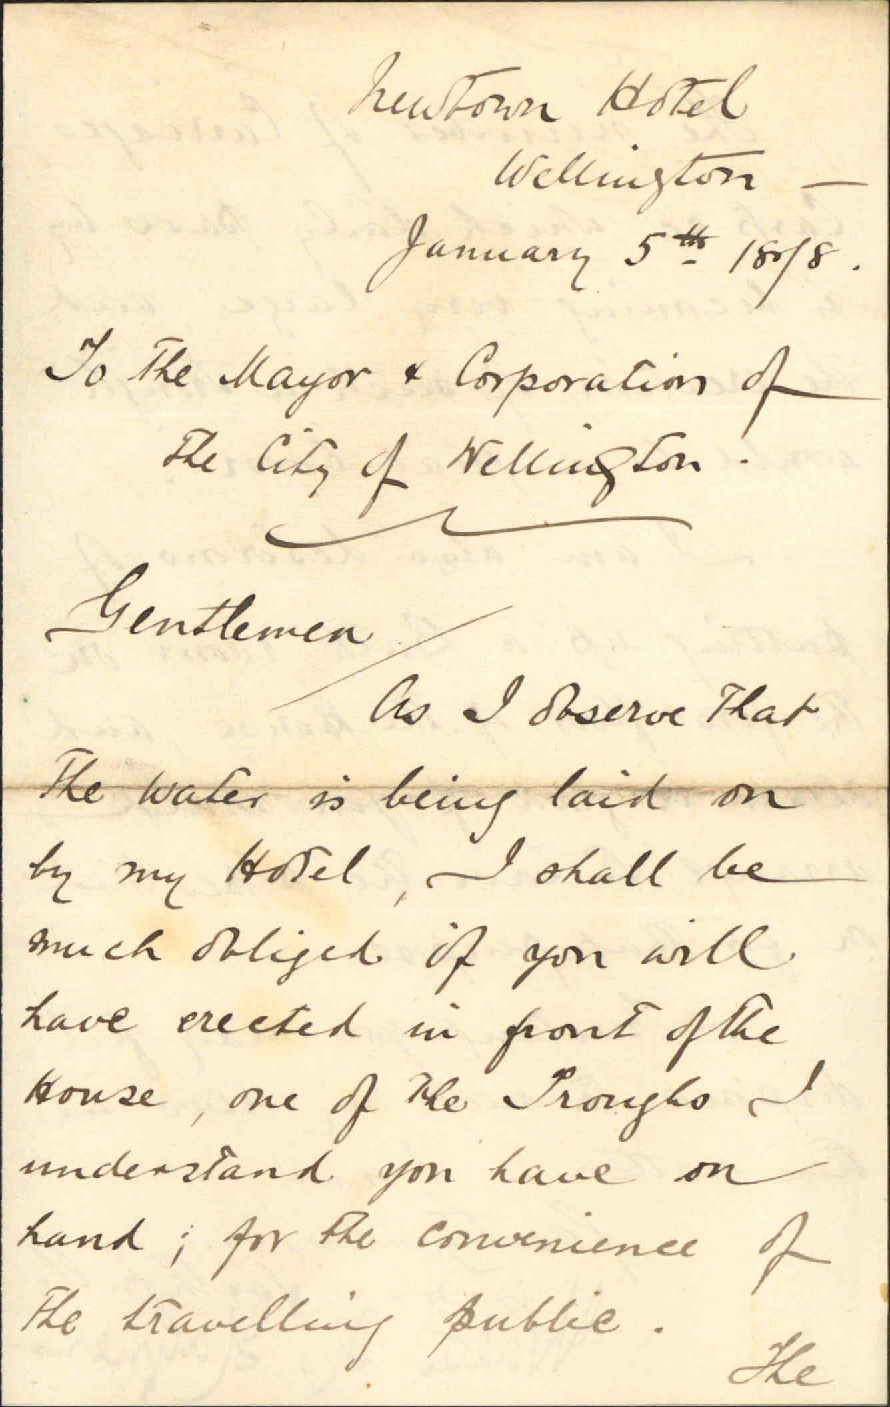 Newtown Hotel
Wellington —
January 5th 1878.
To the Mayor & Corporation of
the City of Wellington.
Gentlemen
As I observe that
the water is being laid on
by my Hotel, I shall be
much obliged if you will
have erected in front of the
House, one of the Troughs I
understand you have on
hand; for the convenience of
the travelling public.
The